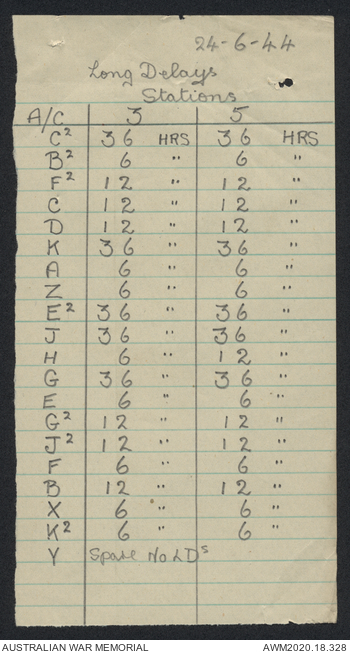 24-6-44
Long Delays
Stations
A/C 3 5
C² 36 HRS 36 HRS
B² 6 " 6 "
F² 12 " 12 "
C 12 " 12 "
D 12 " 12 "
K 36 " 36 "
A 6 " 6 "
Z 6 " 6 "
E² 36 " 36 "
J 36 " 36 "
H 6 " 12 "
G 36 " 36 "
E 6 " 6 "
G² 12 " 12 "
J² 12 " 12 "
F 6 " 6 "
B 12 " 12 "
X 6 " 6 "
K² 6 " 6 "
Y Spare No LDs
AUSTRALIAN WAR MEMORIAL AWM2020.18.328